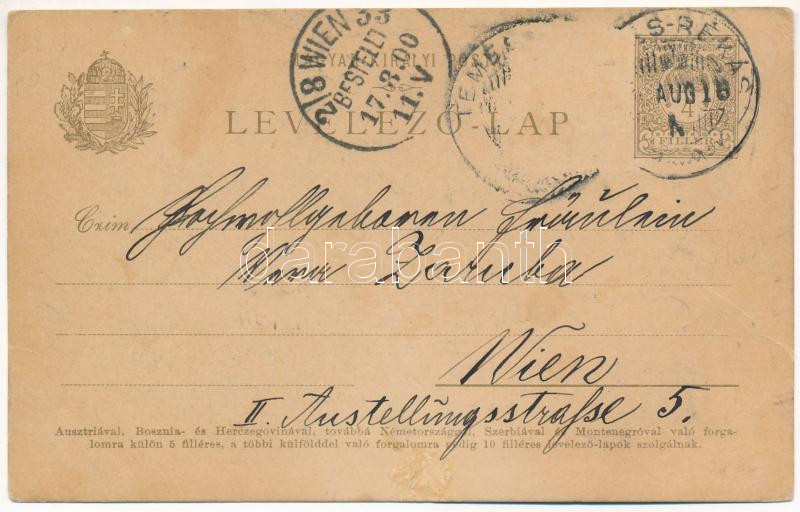 2/8 WIEN 33
BESTELLT
17.8.00
11.V
MAGYAR KIRÁLYI POSTA
TEMES-RÉKÁS
AUG 16
4
FILLÉR
LEVELEZŐ-LAP
Czim Hochwollgeboren Fräulein
Vera Zaruba
Wien
II. Austellungsstraße 5.
darabanth
Ausztriával, Bosznia- és Herczegovinával, továbbá Németországgal, Szerbiával és Montenegróval való forga-
lomra külön 5 filléres, a többi külfölddel való forgalomra pedig 10 filléres levelező-lapok szolgálnak.